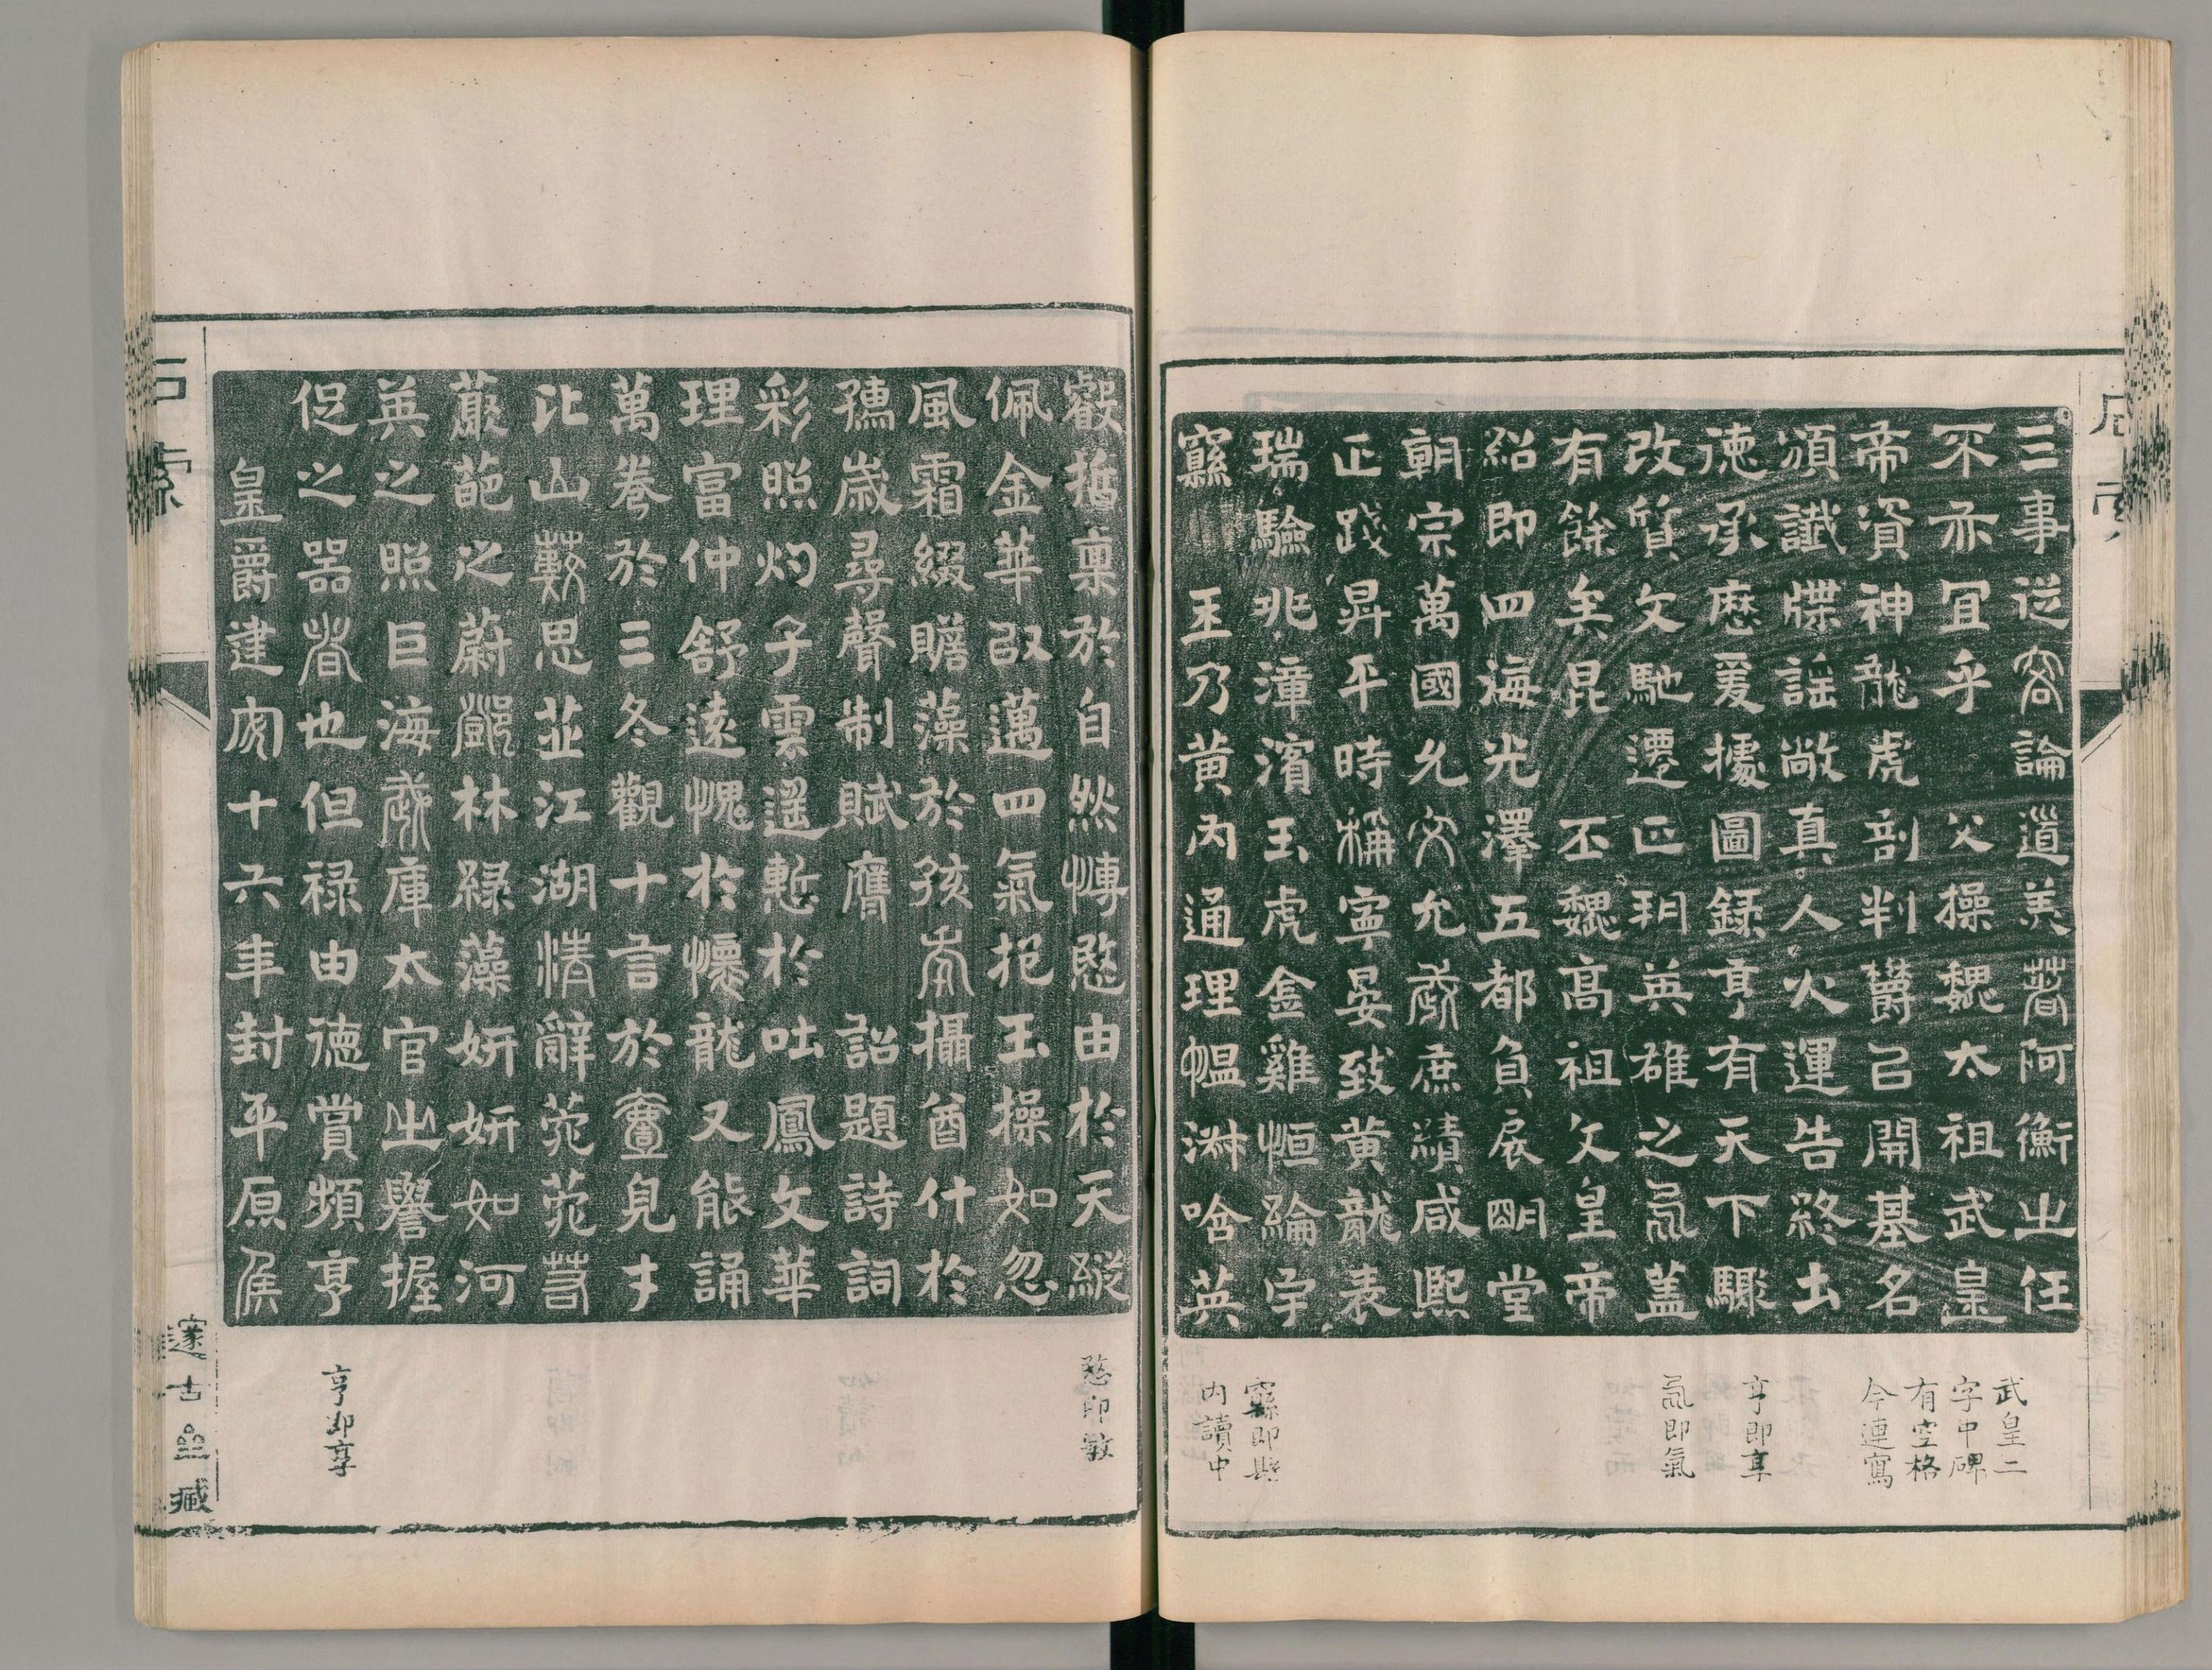 三事從容論道美著阿衡之任
不亦冝乎 父操魏太祖武皇
帝資神龍虎剖判欝㠯開基名
頒讖牒謡敞真人火運告終土
德承曆爰據圖錄享有天下驟
改質文馳遷正朔英雄之𣱛蓋
有餘矣昆 丕魏高祖文皇帝
紹即四海光澤五都負扆朙堂
朝宗萬國允文允武庶績咸熈
正踐昇平時稱寧晏致黄龍表
瑞驗兆漳濱玉虎金雞恒綸宇
 王乃黄内通理愠淋唅英
睿哲禀於自然慱愍由於天縱
佩金華邵邁四氣抱玉操如忽
風霜綴瞻藻於孩年攝酋什於
孺歲尋聲制賦膺 詔題詩詞
彩照灼子雲遥慙於吐鳳文華
理富仲舒遠愧於懷龍又能誦
萬卷於三冬觀十言於壹見才
比山藪思並江湖清辭菀菀若
蘩葩之蔚鄧林緑藻妍妍如河
英之照巨海武庫太官之譽握
促之器者也但禄由德賞頻享
皇爵建安十六年封平原侯
武皇二
字中碑
有空格
今連寫
享即享
𣱛即氣
即縣
内讀中
愍即敏
享即享
石索
邃古齋藏